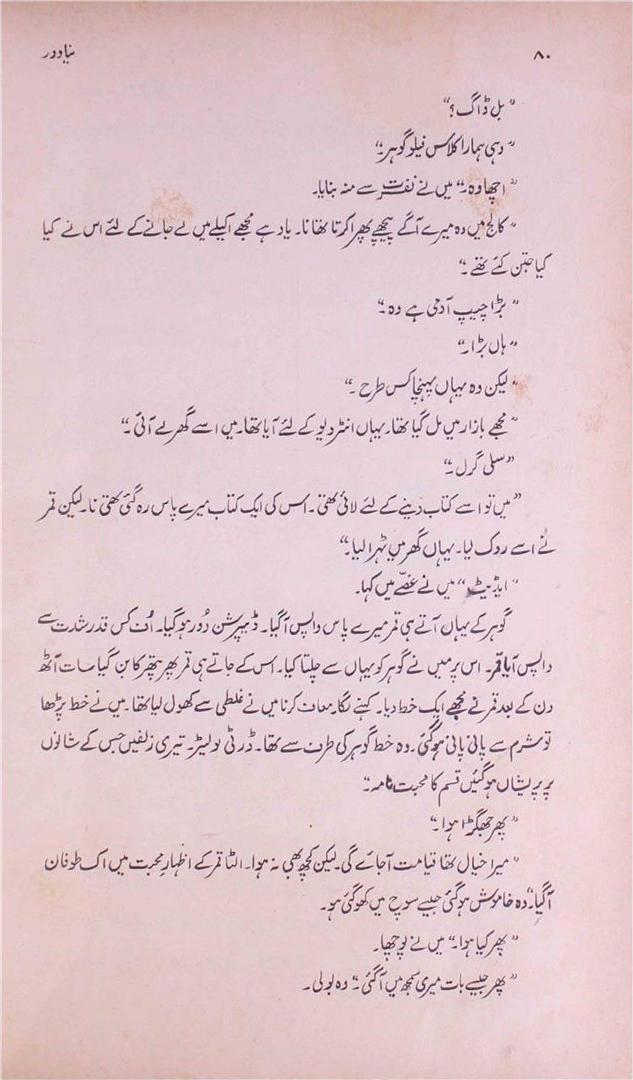 ۸۰ نیا دور
"بل ڈاگ؟"
"وہی ہمارا کلاس فیلو گوہر۔"
"اچھا وہ۔" میں نے نفرت سے منہ بنایا۔
"کالج میں وہ میرے آگے پیچھے پھرا کرتا تھا نا۔ یاد ہے مجھے اکیلے میں لے جانے کے لئے اس نے کیا
کیا جتن کئے تھے۔"
"بڑا چیپ آدمی ہے وہ۔"
"ہاں بڑا۔"
"لیکن وہ یہاں پہنچا کس طرح۔"
"مجھے بازار میں مل گیا تھا۔ یہاں انٹرویو کے لئے آیا تھا۔ میں اسے گھر لے آئی۔"
"سلی گرل۔"
"میں تو اسے کتاب دینے کے لئے لائی تھی۔ اس کی ایک کتاب میرے پاس رہ گئی تھی نا۔ لیکن قمر
نے اسے روک لیا۔ یہاں گھر میں ٹہرا لیا۔"
"ایڈیٹ" میں نے غصّے میں کہا۔
گوہر کے یہاں آتے ہی قمر میرے پاس واپس آ گیا۔ ڈیپریشن دُور ہو گیا۔ اُف کس قدر شدت سے
واپس آیا قمر۔ اس پر میں نے گوہر کو یہاں سے چلتا کیا۔ اس کے جاتے ہی قمر پھر پتھر کا بن گیا سات آٹھ
دن کے بعد قمر نے مجھے ایک خط دیا۔ کہنے لگا۔ معاف کرنا میں نے غلطی سے کھول لیا تھا۔ میں نے خط پڑھا
تو شرم سے پانی پانی ہو گئی۔ وہ خط گوہر کی طرف سے تھا۔ ڈرٹی لو لیٹر۔ تیری زلفیں جس کے شانوں
پر پریشاں ہو گئیں قسم کا محبت نامہ۔"
"پھر جھگڑا ہوا۔"
"میرا خیال تھا قیامت آ جائے گی۔ لیکن کچھ بھی نہ ہوا۔ الٹا قمر کے اظہارِ محبت میں اک طوفان
آ گیا۔" وہ خاموش ہو گئی جیسے سوچ میں کھو گئی ہو۔
"پھر کیا ہوا۔" میں نے پوچھا۔
"پھر جیسے بات میری سمجھ میں آ گئی۔" وہ بولی۔